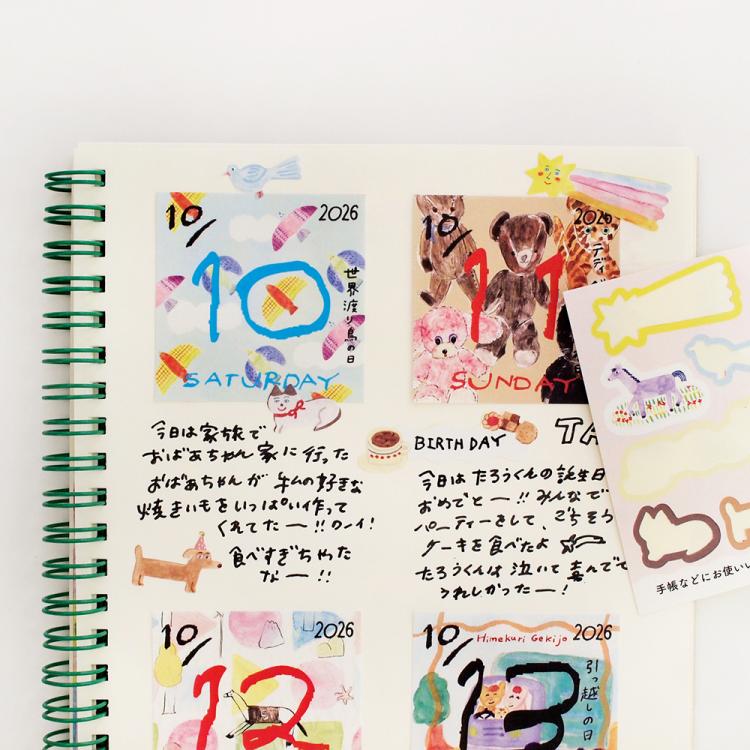 10/ 2026
10
世界渡り鳥の日
SATURDAY
今日は家旅で
おばあちゃん家に行った
おばあちゃんが私の好きな
焼きいもをいっぱい作って
くれてたー!!
食べすぎちゃった
なー!!
10/ 2026
11
テディ
SUNDAY
BIRTHDAY TA
今日はたろうくんの誕生日
おめでとー!!みんなで
パーティーをして、ごちそう
ケーキを食べたよ
たろうくんは泣いて喜んでて
うれしかったー!
10/ 2026
12
10/ Himekuri Gekijo 2026
13
引っ越しの日
手帳などにお使いい